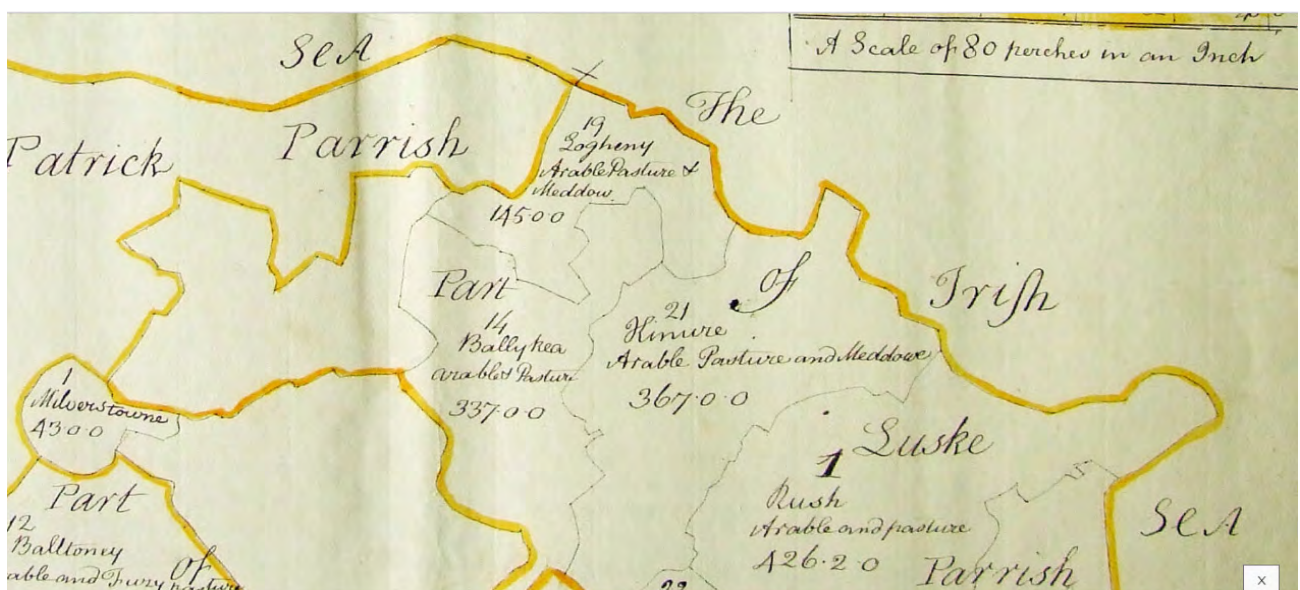 A Scale of 80 perches in an Inch
Sea
The
Patrick
Parrish
19
Logheny
Arable Pasture &
Meddow
145·0·0
Part
of
Irish
14
Ballykea
arable & Pasture
337·0·0
21
Kinure
Arable Pasture and Meddowe
367·0·0
1
Milverstowne
43·0·0
Luske
1
Rush
Arable and pasture
426·2·0
Sea
Parrish
Part
12
Balltoney
able and Furzy pasture
of
22
x